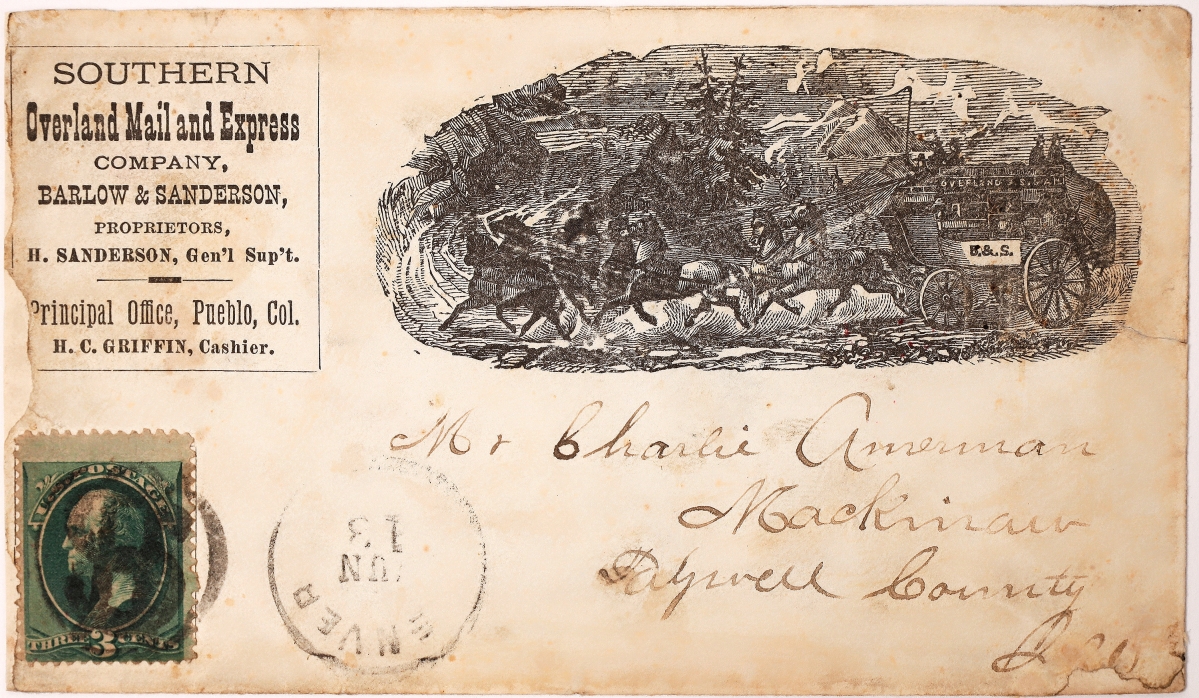 SOUTHERN
Overland Mail and Express
COMPANY,
BARLOW & SANDERSON,
PROPRIETORS,
H. SANDERSON, Gen'l Sup't.
Principal Office, Pueblo, Col.
H. C. GRIFFIN, Cashier.
OVERLAND
B.&S.
Mr Charlie Amerman
Mackinaw
Tazwell County
U.S. POSTAGE
THREE 3 CENTS
ENVER
JUN
13